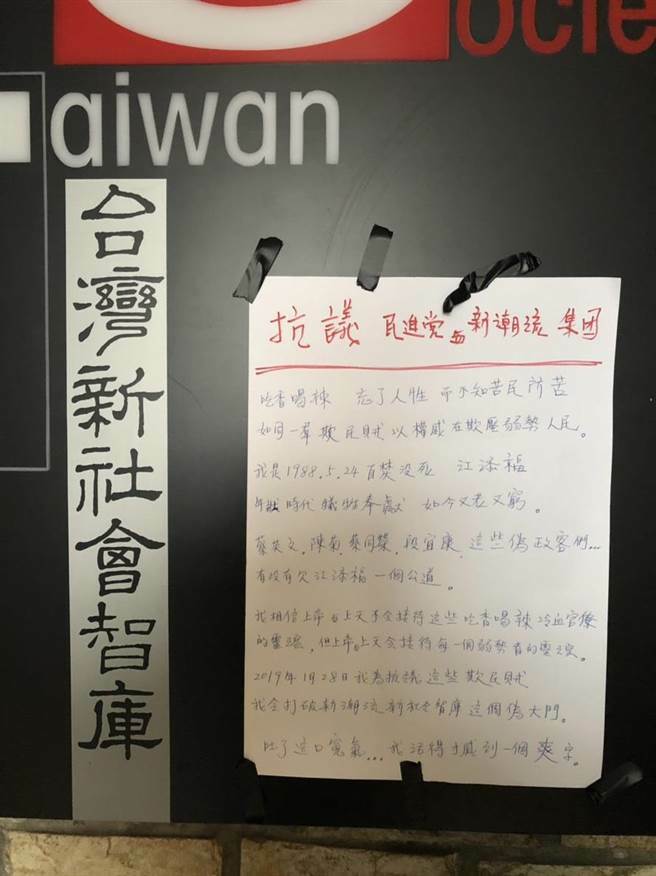 ocie
aiwan
台灣新社會智庫
抗議 民進党与新潮流 集团
吃香喝辣 忘了人性 而不知苦民所苦
如同一羣欺民賊以權威在欺壓弱勢人民。
我是1988.5.24自焚沒死 江添福
年壯時代犧牲奉獻 如今又老又窮。
蔡英文.陳菊.蔡同榮.段宜康.這些偽政客們...
有沒有欠江添福一個公道。
我相信上帝与上天不会接待這些吃香喝辣冷血官僚
的靈魂,但上帝与上天会接待每一個弱勢者的靈魂。
2019年1月28日我為抗議這些欺民賊
我会打破新潮流新社会智庫這個偽大門。
吐了這口冤氣...我活得才感到一個爽字。